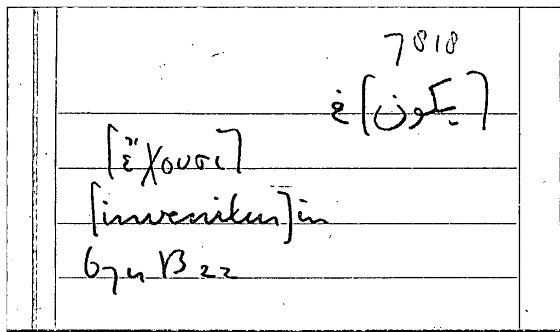 7818
[يكون] غ
[ἔχουσι]
[invenitur] in
B 22